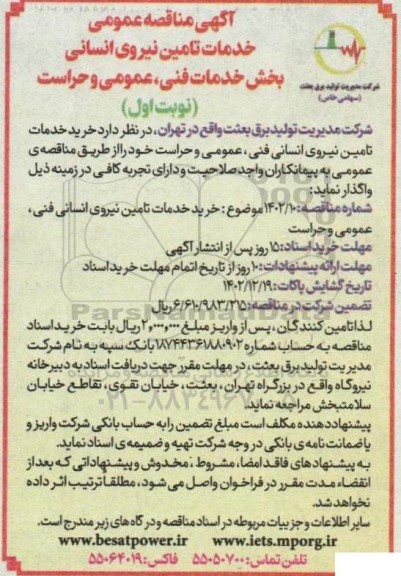 آگهی مناقصه عمومی
خدمات تامین نیروی انسانی
بخش خدمات فنی، عمومی وحراست
(نوبت اول)
شرکت مدیریت تولید برق بعثت
(سهامی خاص)
شرکت مدیریت تولیدبرق بعثت واقع در تهران، در نظر دارد خرید خدمات
تامین نیروی انسانی فنی، عمومی و حراست خود را از طریق مناقصه‌ی
عمومی به پیمانکاران واجد صلاحیت و دارای تجربه کافی در زمینه ذیل
واگذار نماید:
شماره مناقصه: ۱۴۰۲/۱۰ موضوع: خرید خدمات تامین نیروی انسانی فنی،
عمومی و حراست
مهلت خرید اسناد: ۱۵ روز پس از انتشار آگهی
مهلت ارائه پیشنهادات: ۱۰ روز از تاریخ اتمام مهلت خرید اسناد
تاریخ گشایش پاکات: ۱۴۰۲/۱۲/۱۹
تضمین شرکت در مناقصه: ۶/۶۱۰/۹۸۳/۲۱۵ ریال
لذا تامین کنندگان، پس از واریز مبلغ ۲٫۰۰۰٫۰۰۰ ریال بابت خرید اسناد
مناقصه به حساب شماره ۱۸۷۴۴۳۶۱۸۸۰۹۰۲ بانک سپه به نام شرکت
مدیریت تولید برق بعثت، در مهلت مقرر جهت دریافت اسناد به دبیرخانه
نیروگاه واقع در بزرگراه تهران، بعثت، خیابان تقوی، تقاطع خیابان
سلامتبخش مراجعه نماید.
پیشنهاد دهنده مکلف است مبلغ تضمین را به حساب بانکی شرکت واریز و
یا ضمانت نامه ی بانکی در وجه شرکت تهیه و ضمیمه ی اسناد نماید.
به پیشنهادهای فاقد امضاء، مشروط، مخدوش و پیشنهاداتی که بعد از
انقضاء مدت مقرر در فراخوان واصل می شود، مطلقا ترتیب اثر داده
نخواهد شد.
سایر اطلاعات و جزییات مربوطه در اسناد مناقصه و درگاه های زیر مندرج است.
www.iets.mporg.ir www.besatpower.ir
تلفن تماس: ۵۵۰۵۰۷۰۰ فاکس: ۵۵۰۶۴۰۱۹
ParsNamadData
۰۲۱-۸۸۳۴۹۶۷۰